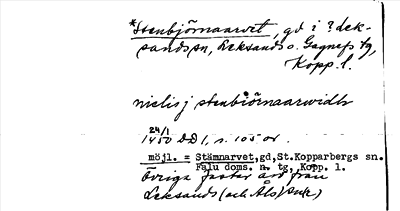 *Stenbjörnaarvet, gd i ? Lek-
sands sn, Leksands o. Gagnefs tg,
Kopp. l.
nielisj stenbiörnaarwidh
24/1
1450 DD 1, n. 105 or.
möjl. = Stämnarvet,gd,St.Kopparbergs sn.
Falu doms. a. tg, Kopp. l.
Övriga faster äro från
Leksands (och Åls) sn(r)